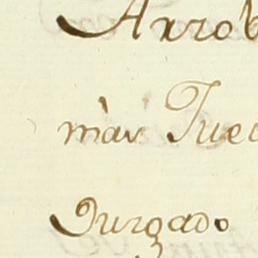 Arrob
màs Juec
Jurgado.